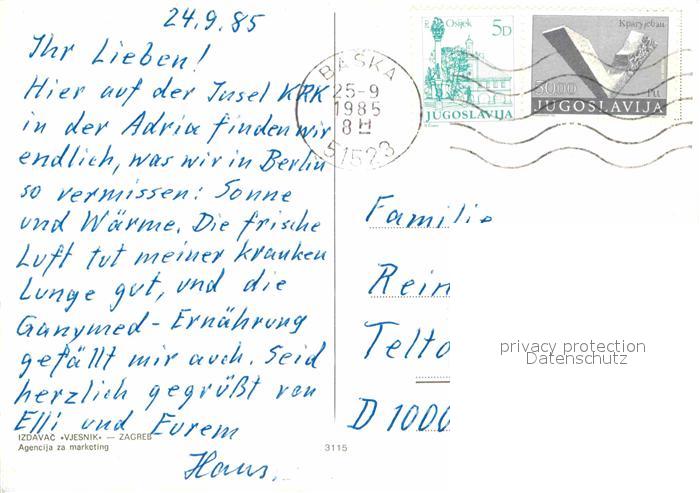 24.9.85
Ihr Lieben!
Hier auf der Insel KRK
in der Adria finden wir
endlich, was wir in Berlin
so vermissen: Sonne
und Wärme. Die frische
Luft tut meiner kranken
Lunge gut, und die
Ganymed-Ernährung
gefällt mir auch. Seid
herzlich gegrüßt von
Elli und Eurem
Haus.
IZDAVAČ »VJESNIK« — ZAGREB
Agencija za marketing
3115
BAŠKA
25-9
1985
8H
51523
Osijek
5D
JUGOSLAVIJA
Крагујевац
50.00
JUGOSLAVIJA
Familie
Rein
Telto
D 1000
privacy protection
Datenschutz